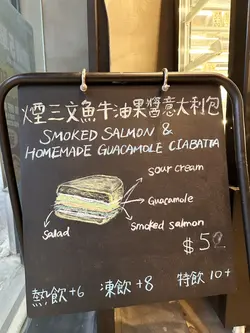 煙三文魚牛油果醬意大利包
SMOKED SALMON &
HOMEMADE GUACAMOLE CIABATTA
sour cream
Guacamole
smoked salmon
salad
$5
熱飲+6 凍飲+8 特飲10+